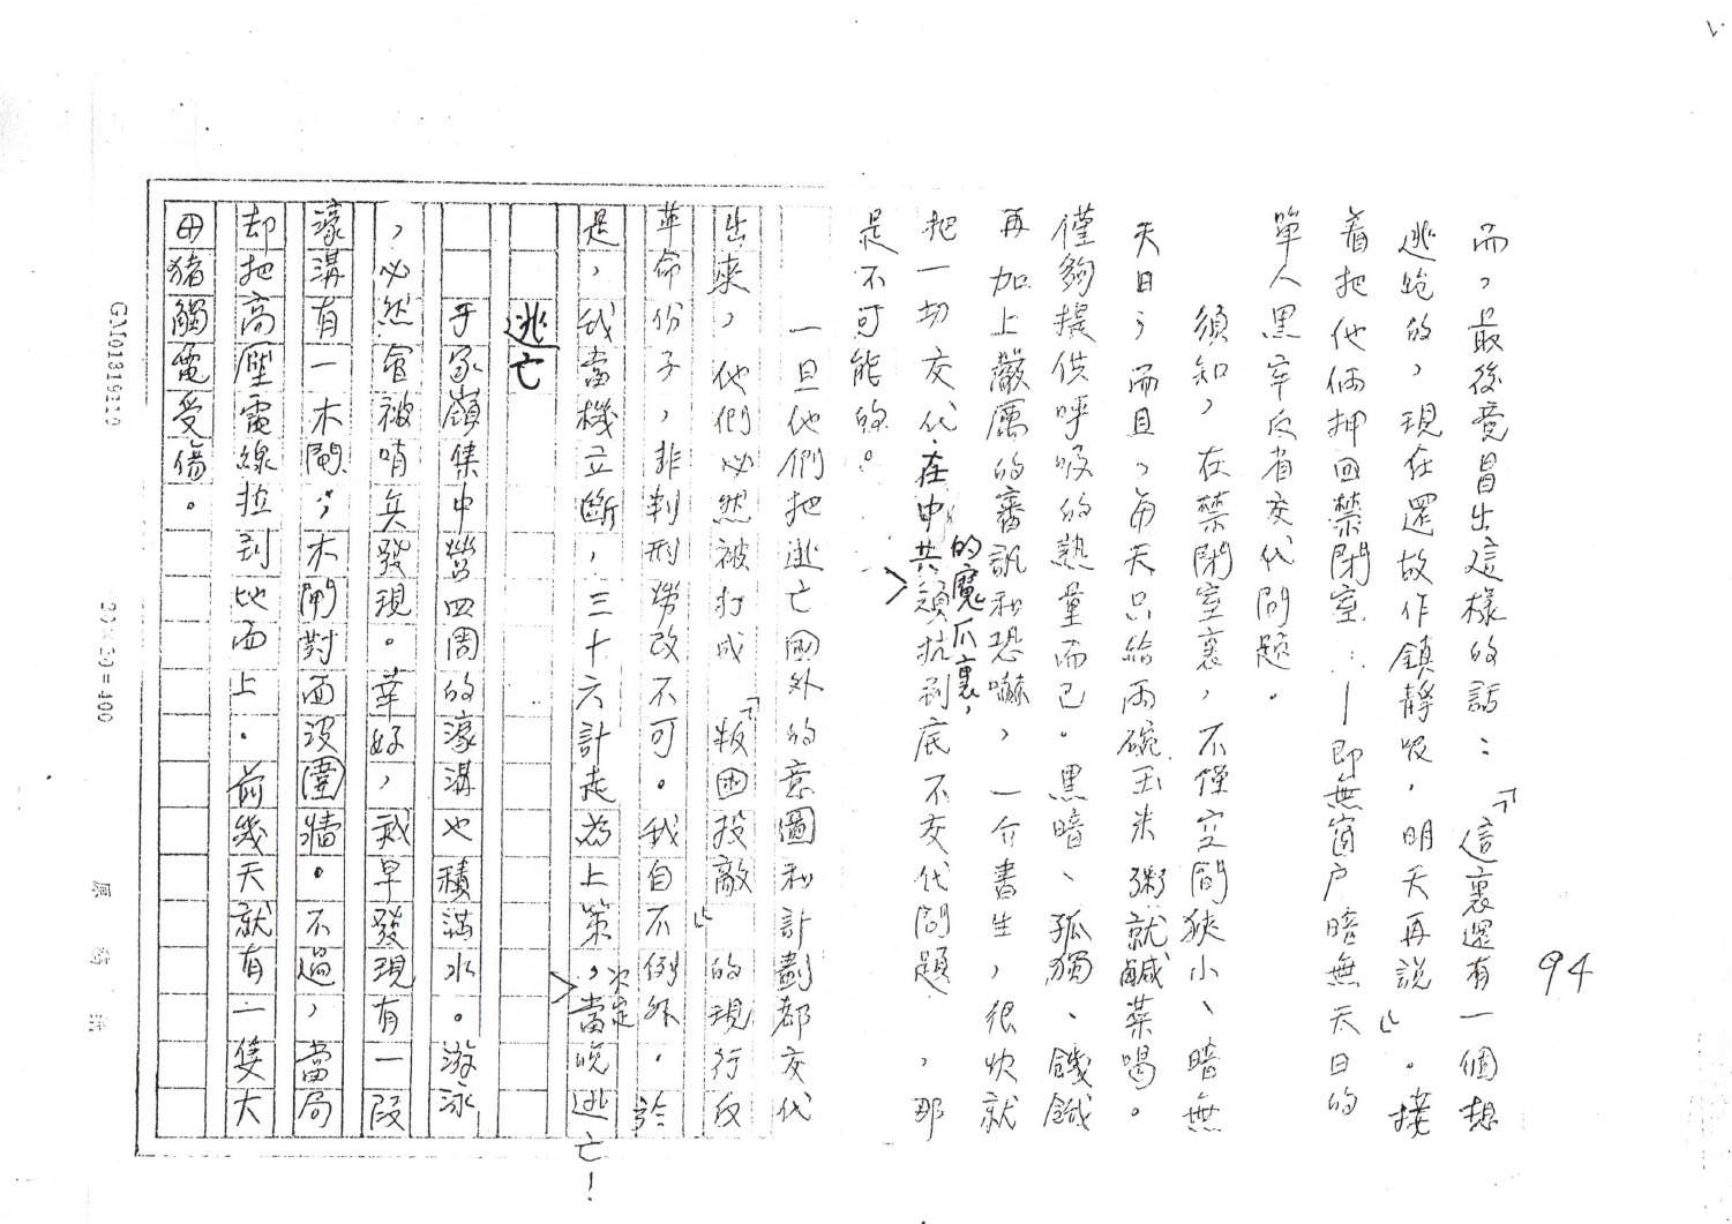 94
而，最後竟冒出這樣的話：「這裏還有一個想
逃跑的，現在還故作鎮靜吸，明天再說」。接
着把他倆押回禁閉室…—即無窗户暗無天日的
單人黑牢反省交代問題。
須知，在禁閉室裏，不僅空間狹小、暗無
天日，而且，每天只給兩碗玉米粥就鹹菜喝。
僅夠提供呼吸的熱量而已。黑暗、孤獨、饑餓
再加上嚴厲的審訊和恐嚇，一介書生，很快就
把一切交代.在中共的魔爪裏，頑抗到底不交代問題，那
是不可能的。
一旦他們把逃亡國外的意圖和計劃都交代
出來，他們必然被打成「叛国投敵」的現行反
革命份子，非判刑勞改不可。我自不例外．於
是，我當機立斷，三十六計走為上策，決定當晚逃亡！
逃亡
于家嶺集中營四周的濠溝也積滿水。游泳
，必然會被哨兵發現。幸好，我早發現有一段
濠溝有一木閘；木閘對面没圍牆。不過，當局
却把高壓電線拉到地面上．前幾天就有一隻大
母猪觸電受傷。
20×20=400
原稿紙